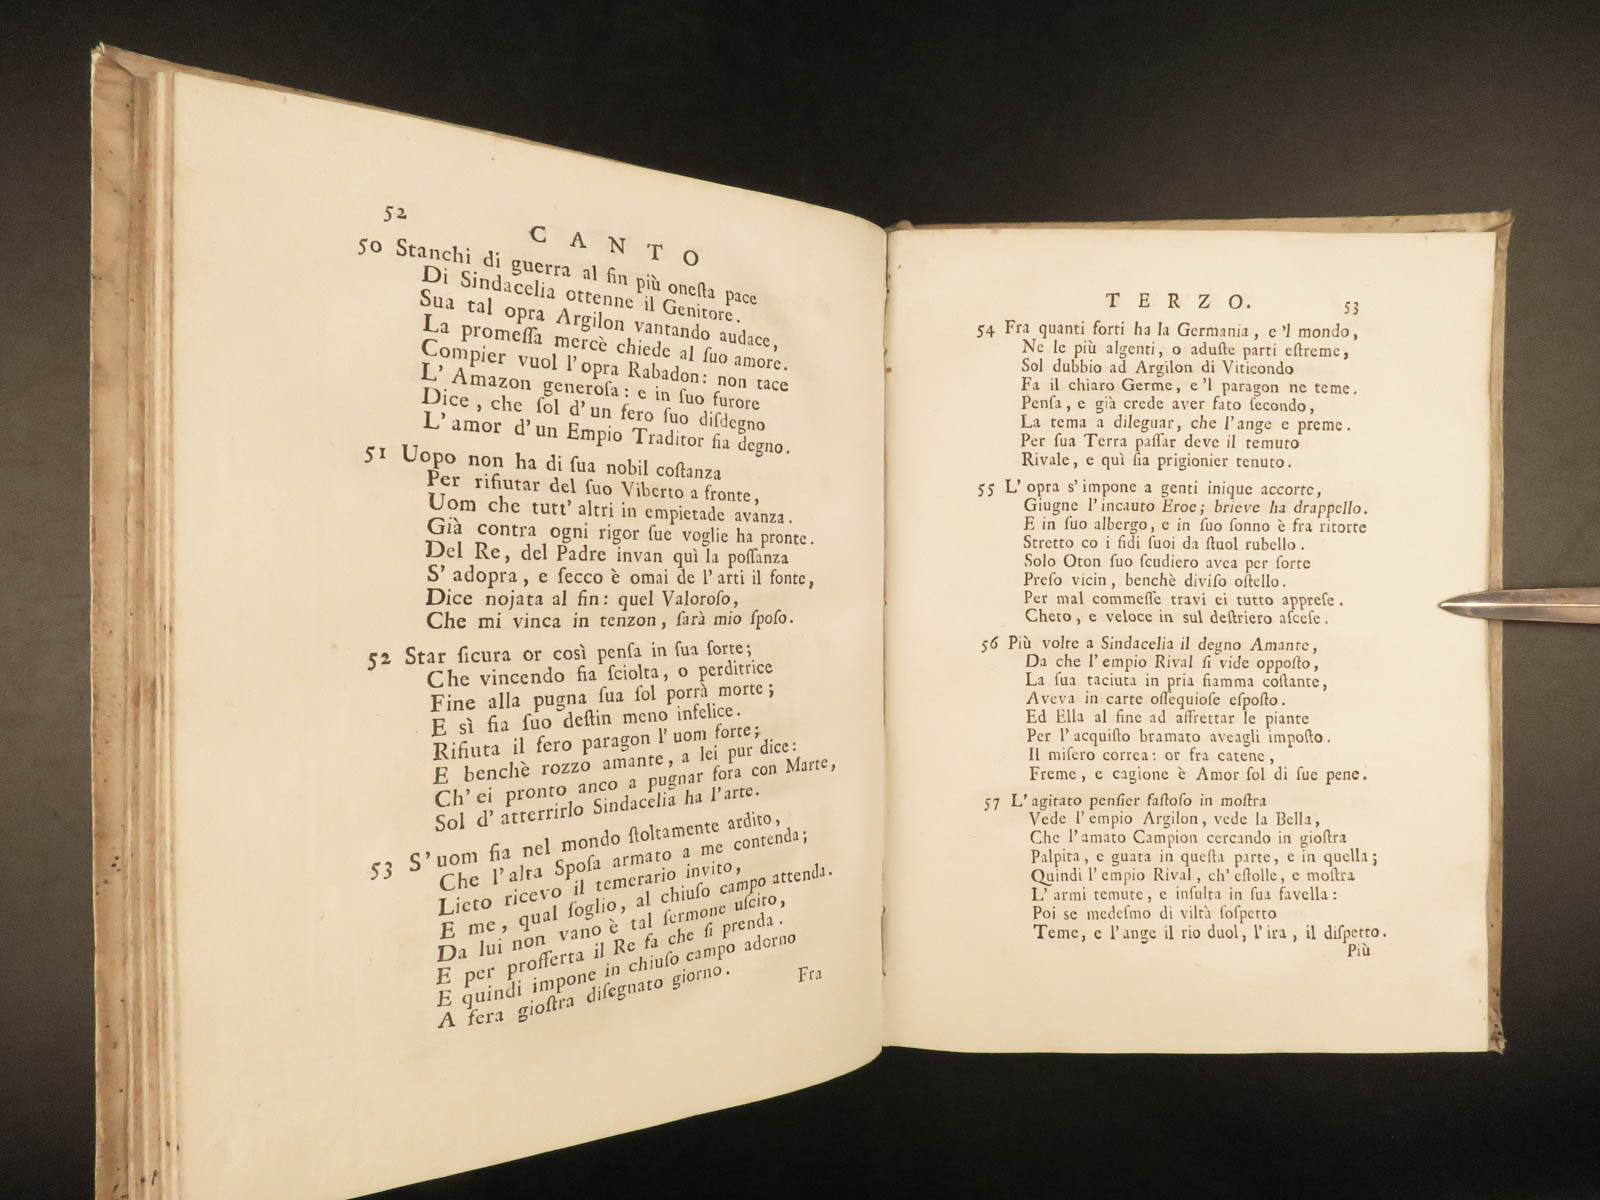 52
CANTO
50 Stanchi di guerra al fin più oneſta pace
Di Sindacelia ottenne il Genitore.
Sua tal opra Argilon vantando audace,
La promeſſa mercè chiede al ſuo amore.
Compier vuol l'opra Rabadon: non tace
L' Amazon generoſa: e in ſuo furore
Dice, che ſol d'un fero ſuo diſdegno
L'amor d'un Empio Traditor ſia degno.
51 Uopo non ha di ſua nobil coſtanza
Per rifiutar del ſuo Viberto a fronte,
Uom che tutt' altri in empietade avanza.
Già contra ogni rigor ſue voglie ha pronte.
Del Re, del Padre invan quì la poſſanza
S' adopra, e ſecco è omai de l'arti il fonte,
Dice nojata al fin: quel Valoroſo,
Che mi vinca in tenzon, ſarà mio ſpoſo.
52 Star ſicura or così penſa in ſua ſorte;
Che vincendo fia ſciolta, o perditrice
Fine alla pugna ſua ſol porrà morte;
E sì fia ſuo deſtin meno infelice.
Rifiuta il fero paragon l' uom forte;
E benchè rozzo amante, a lei pur dice:
Ch' ei pronto anco a pugnar fora con Marte,
Sol d' atterrirlo Sindacelia ha l'arte.
53 S'uom ſia nel mondo ſtoltamente ardito,
Che l'alta Spoſa armato a me contenda;
Lieto ricevo il temerario invito,
E me, qual ſoglio, al chiuſo campo attenda.
Da lui non vano è tal ſermone uſcito,
E per profferta il Re fa che ſi prenda.
E quindi impone in chiuſo campo adorno
A fera gioſtra diſegnato giorno.
Fra
TERZO.
53
54 Fra quanti forti ha la Germania, e 'l mondo,
Ne le più algenti, o aduſte parti eſtreme,
Sol dubbio ad Argilon di Viticondo
Fa il chiaro Germe, e 'l paragon ne teme.
Penſa, e già crede aver fato ſecondo,
La tema a dileguar, che l'ange e preme.
Per ſua Terra paſſar deve il temuto
Rivale, e quì ſia prigionier tenuto.
55 L' opra s'impone a genti inique accorte,
Giugne l'incauto Eroe; brieve ha drappello.
E in ſuo albergo, e in ſuo ſonno è fra ritorte
Stretto co i fidi ſuoi da ſtuol rubello.
Solo Oton ſuo ſcudiero avea per ſorte
Preſo vicin, benchè diviſo oſtello.
Per mal commeſſe travi ei tutto appreſe.
Cheto, e veloce in sul deſtriero aſceſe.
56 Più volte a Sindacelia il degno Amante,
Da che l' empio Rival ſi vide oppoſto,
La ſua taciuta in pria fiamma coſtante,
Aveva in carte oſſequioſe eſpoſto.
Ed Ella al fine ad affrettar le piante
Per l' acquiſto bramato aveagli impoſto.
Il miſero correa: or fra catene,
Freme, e cagione è Amor ſol di ſue pene.
57 L' agitato penſier faſtoſo in moſtra
Vede l' empio Argilon, vede la Bella,
Che l'amato Campion cercando in gioſtra
Palpita, e guata in queſta parte, e in quella;
Quindi l' empio Rival, ch' eſtolle, e moſtra
L' armi temute, e inſulta in ſua favella:
Poi se medeſmo di viltà ſoſpetto
Teme, e l'ange il rio duol, l'ira, il diſpetto.
Più